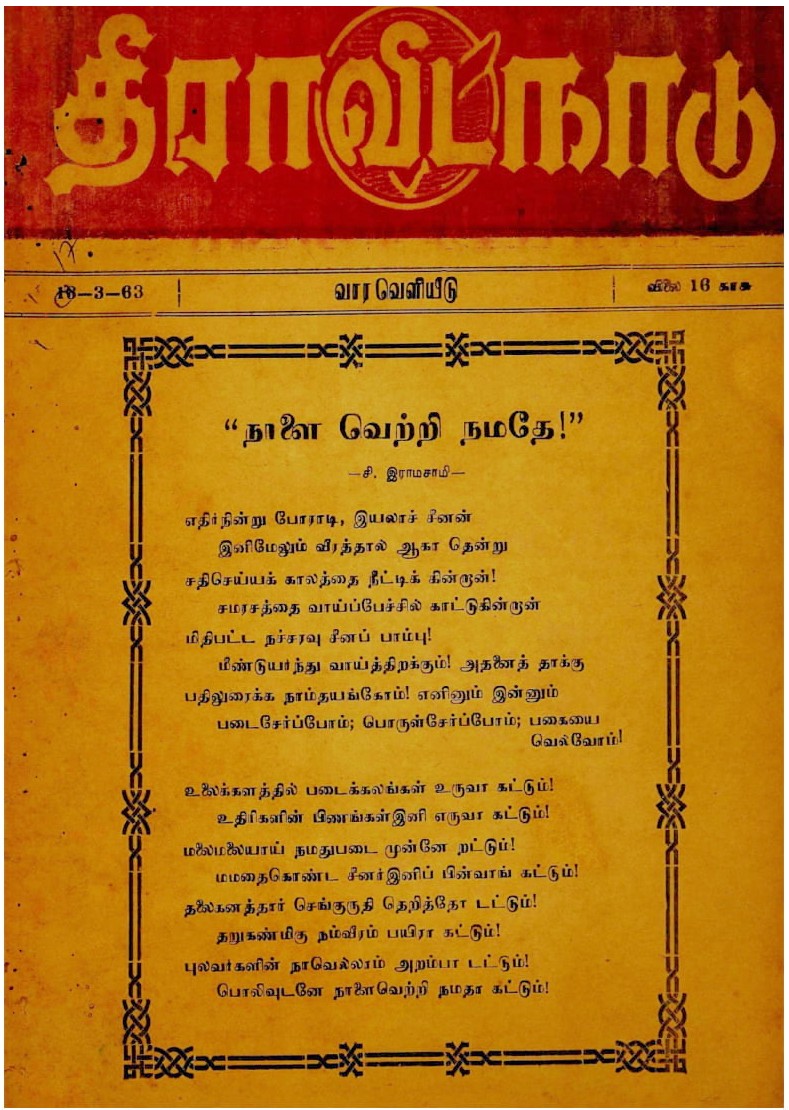 திராவிடநாடு
17.
18-3-63
வார வெளியீடு
விலை 16 காசு
“நாளை வெற்றி நமதே!”
—சி. இராமசாமி—
எதிர்நின்று போராடி, இயலாச் சீனன்
இனிமேலும் வீரத்தால் ஆகா தென்று
சதிசெய்யக் காலத்தை நீட்டிக் கின்றான்!
சமரசத்தை வாய்ப்பேச்சில் காட்டுகின்றான்
மிதிபட்ட நச்சரவு சீனப் பாம்பு!
மீண்டுயர்ந்து வாய்த்திறக்கும்! அதனைத் தாக்கு
பதிலுரைக்க நாம்தயங்கோம்! எனினும் இன்னும்
படைசேர்ப்போம்; பொருள்சேர்ப்போம்; பகையை
வெல்வோம்!
உலைக்களத்தில் படைக்கலங்கள் உருவா கட்டும்!
உதிரிகளின் பிணங்கள்இனி எருவா கட்டும்!
மலைமலையாய் நமதுபடை முன்னே றட்டும்!
மமதைகொண்ட சீனர்இனிப் பின்வாங் கட்டும்!
தலைகனத்தார் செங்குருதி தெறித்தோ டட்டும்!
தறுகண்மிகு நம்வீரம் பயிரா கட்டும்!
புலவர்களின் நாவெல்லாம் அறம்பா டட்டும்!
பொலிவுடனே நாளைவெற்றி நமதா கட்டும்!